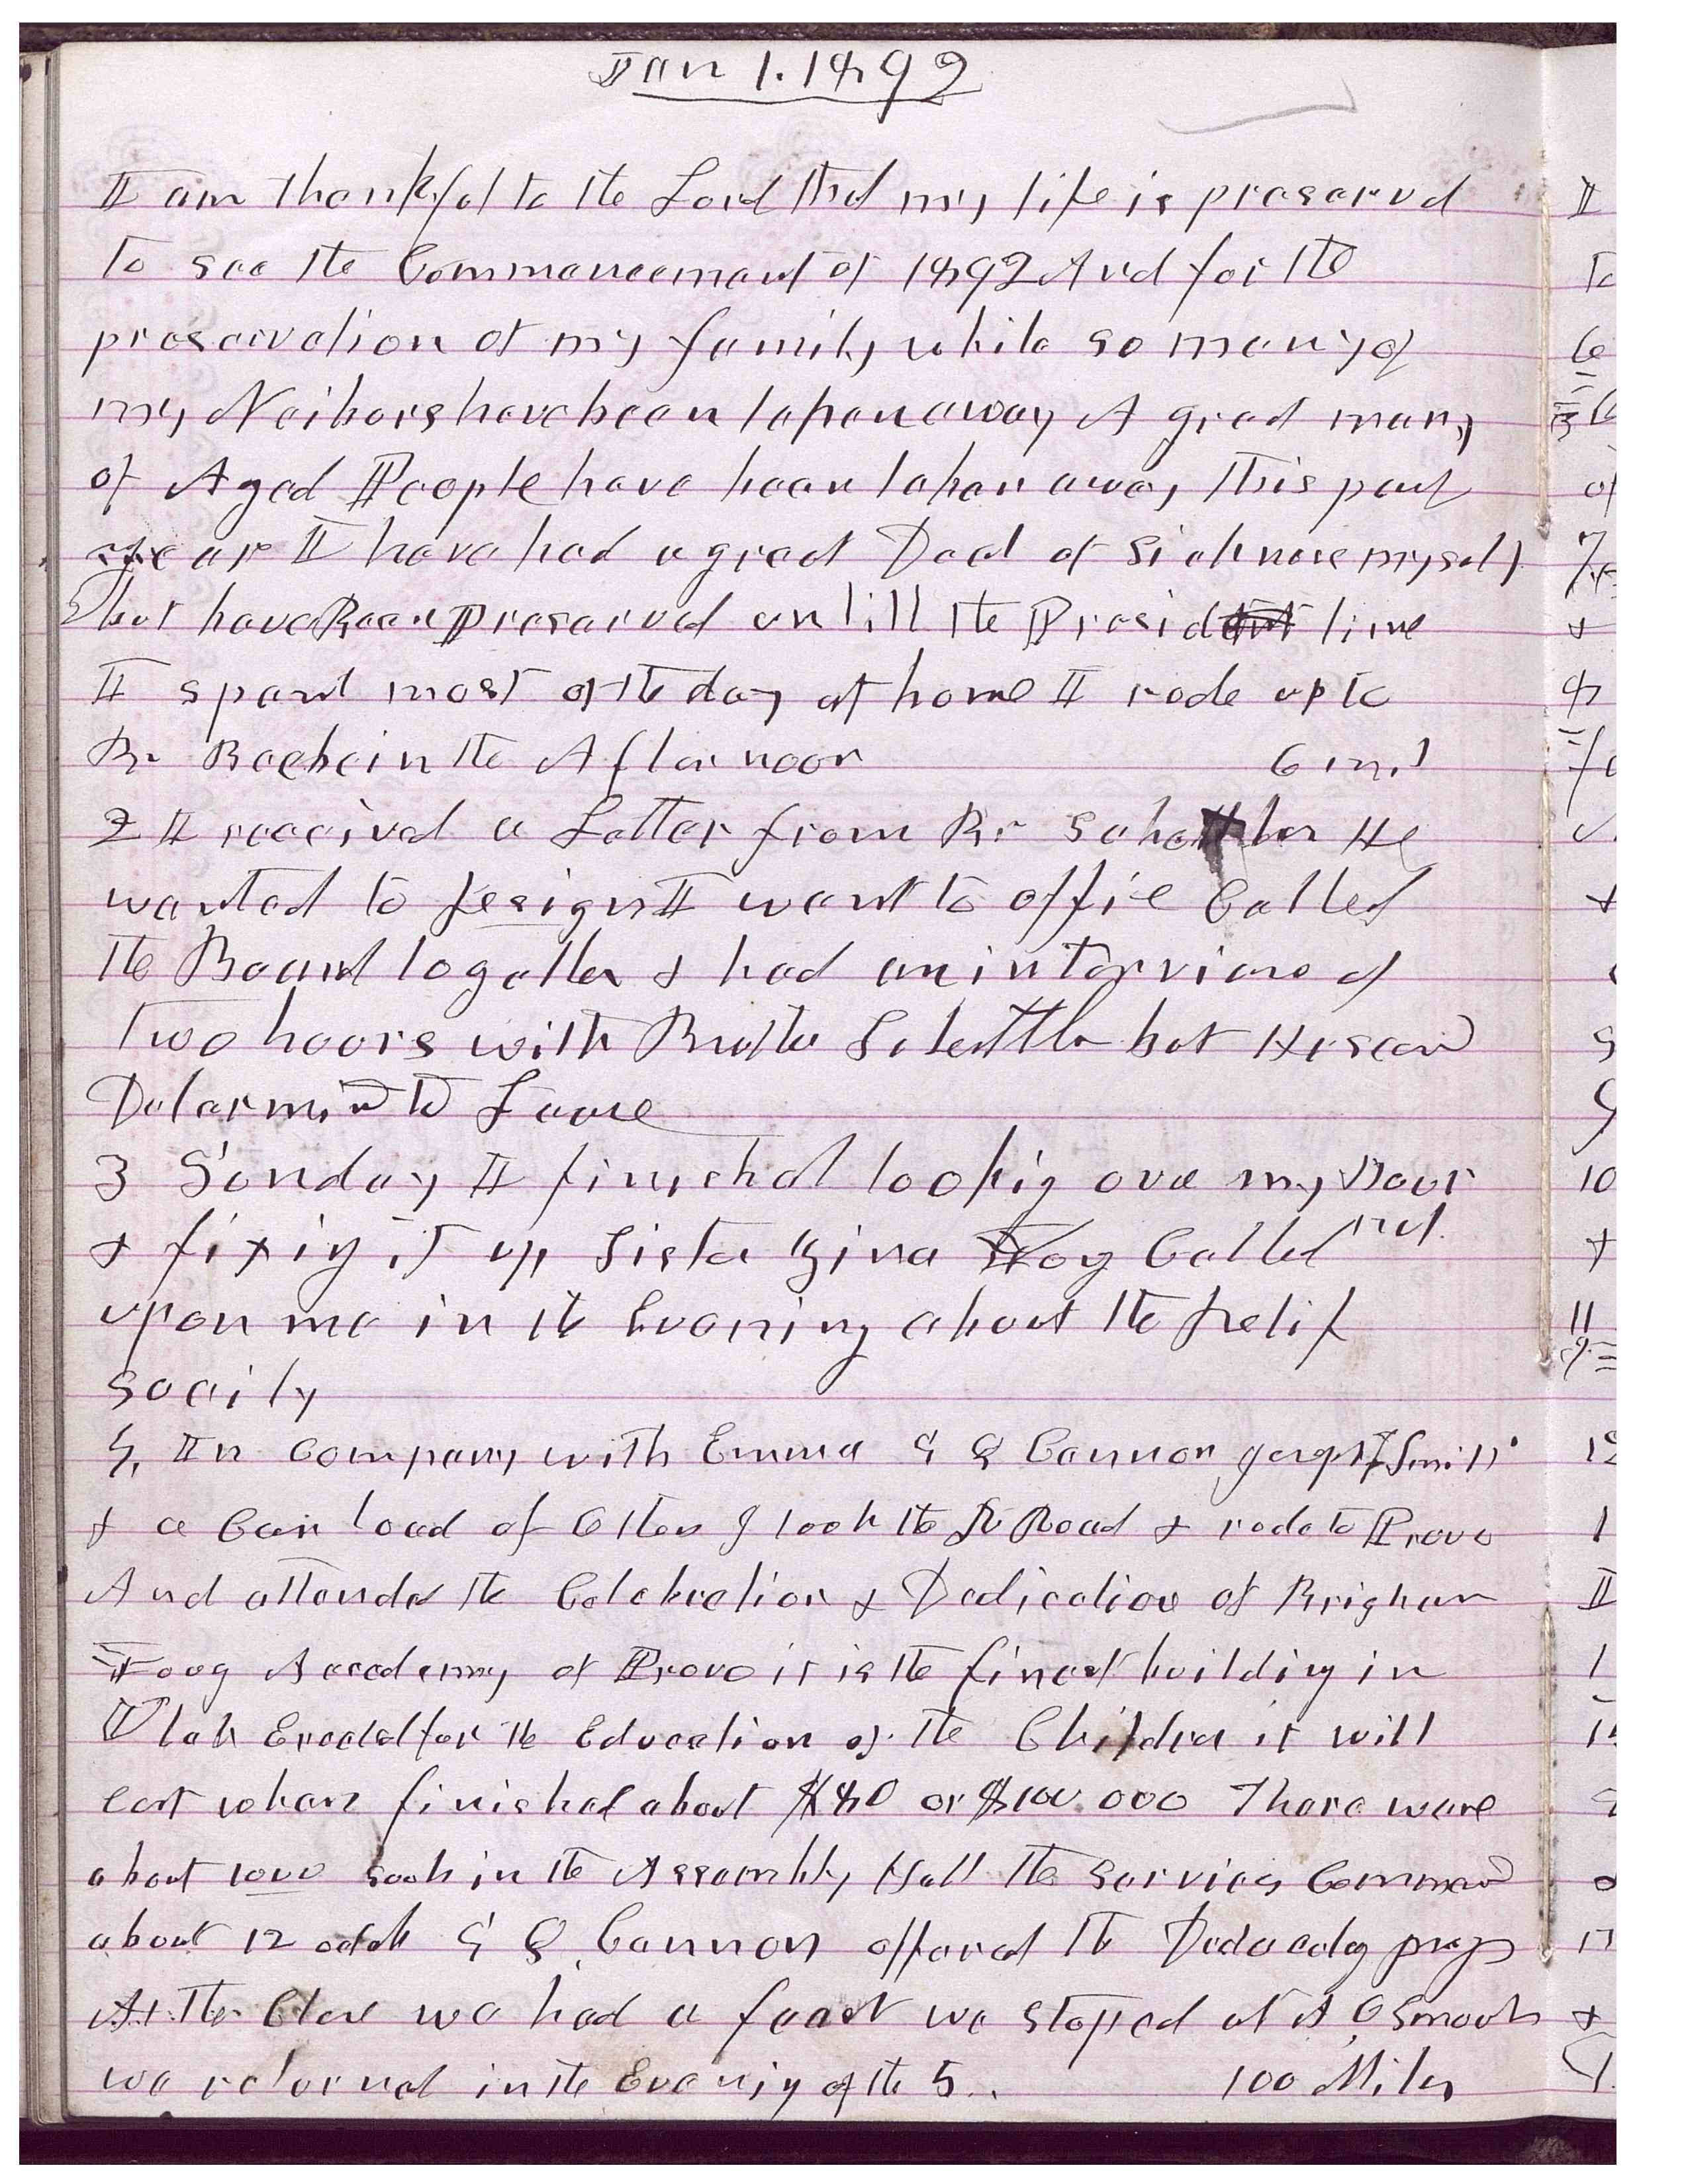 Jan 1. 1892
I am thankful to the Lord that my life is preserved
to see the Commencement of 1892 And for the
preservation of my family while so many of
my Neibors have been taken away A great many
of Aged People have been taken away this past
year I have had a great Deal of Sickness myself
but have Been Preserved untill the Presid time
I spent most of the day at home I rode up to
Br Beebe in the Afternoon 6 m.
2 I received a Letter from Br Schettler He
wanted to resign I went to offie Called
the Board togather & had an interview of
two hours with Brother Schettler but He seemd
Determind to Leave
3 Sunday I finished looking over my
& fixing it up Sister Zina Young Called
upon me in the Evening about the Relif
society
4, In Company with Emma G Q Cannon Smith
& a Car load of Others I took the R Road & rode to Provo
And attended the Celebration & Dedication of Brigham
Young Accademy at Provo it is the finest building in
Utah Erected for the Education of the Children it will
cost when finished about $80 or $100.000 There were
about 1000 souls in the Assembly Hall the Services Commend
about 12 oclok G Q Cannon offered the prayer
At the Close we had a feast we stoped at A O Smoots
we returned in the Evening of the 5.. 100 Miles